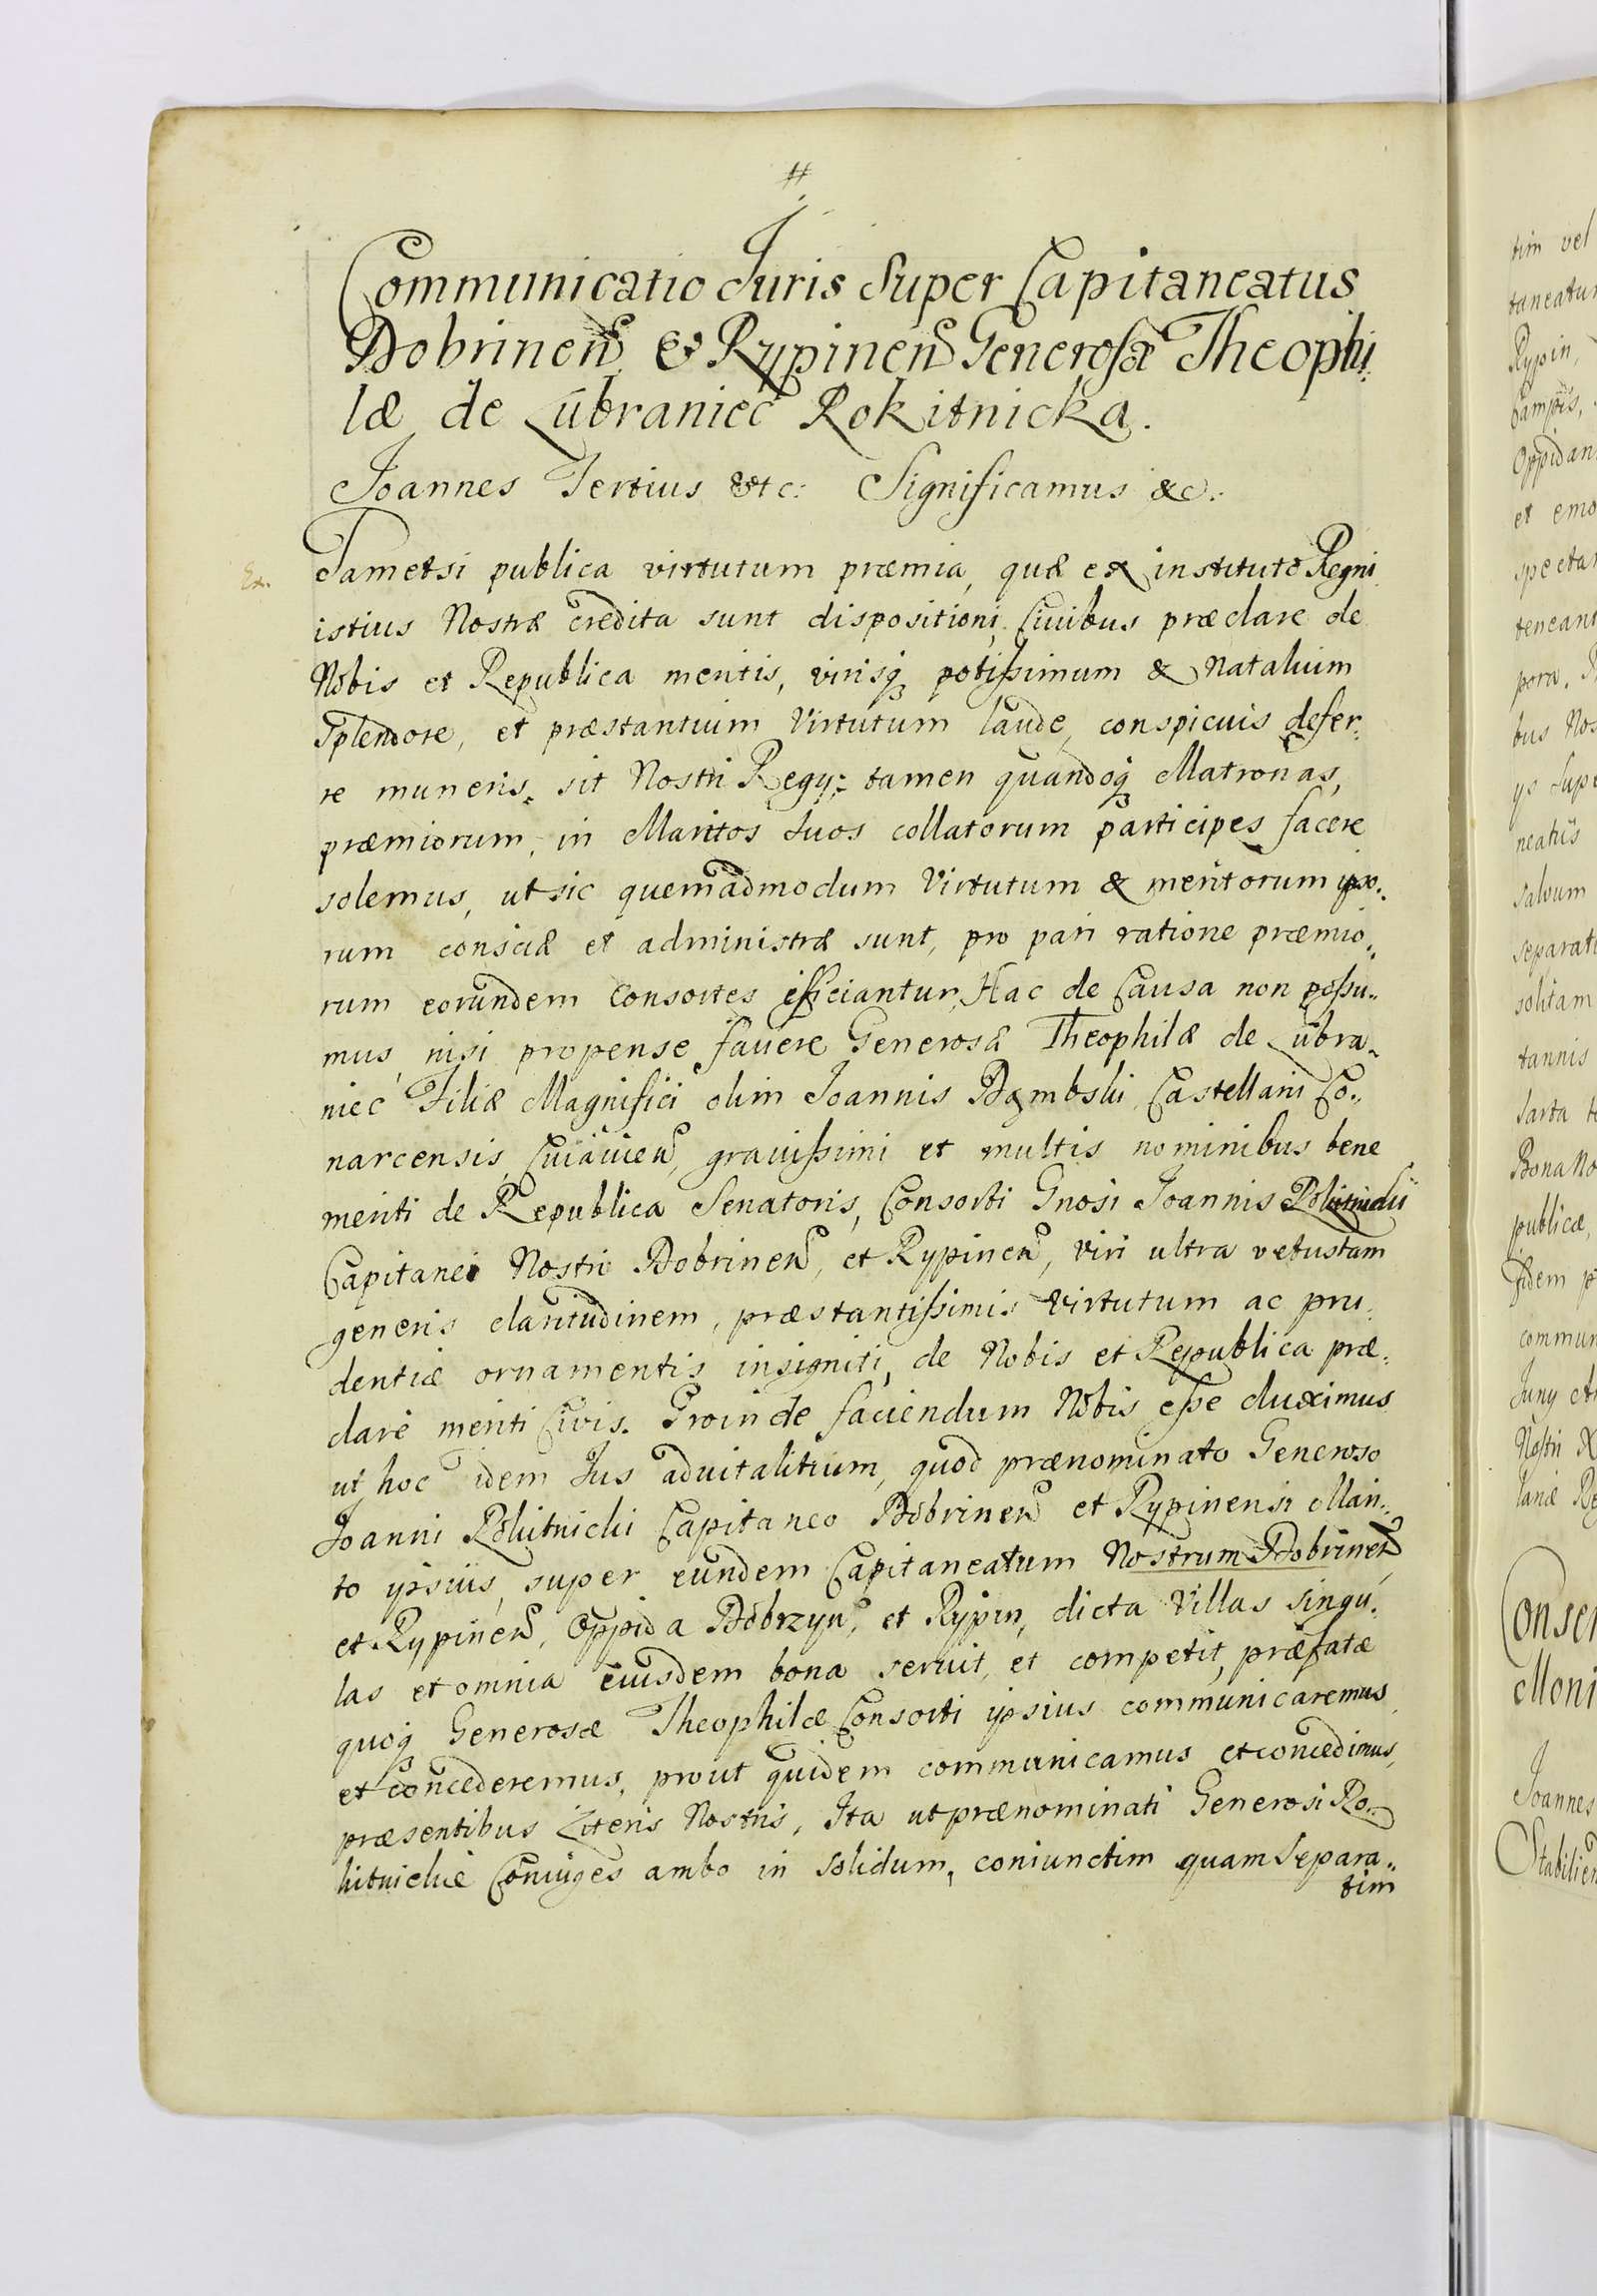 #
Communicatio Juris Super Capitaneatus
Dobrinen. & Rypinen Generosæ Theophi
læ de Lubraniec Rokitnicka.
Joannes Tertius etc: Significamus &c:
Ex.
Tametsi publica virtutum præmia, quæ ex instituto Regni
istius Nostræ credita sunt dispositioni, Civibus præclare de
Nobis et Republica meritis, virisq potissimum & Natalium
Splendore, et præstantium Virtutum laude, conspicuis defer-
re muneris sit Nostri Regy: tamen quandoq Matronas,
præmiorum, in Maritos Suos collatorum participes facere
solemus, ut sic quemadmodum Virtutum & meritorum ipso-
rum consciæ et administræ sunt, pro pari ratione præmio-
rum eorundem Consortes efficiantur, Hac de Causa non possu-
mus, nisi propense fauere Generosæ Theophilæ de Lubra-
niec Filiæ Magnifici olim Joannis Dąmbski Castellani Co-
narcensis Cuiauien, grauissimi et multis nominibus bene
meriti de Republica Senatoris, Consorti Gnosi Joannis Rokitnicki
Capitanei Nostri Dobrinen, et Rypinen, viri ultra vetustam
generis claritudinem, præstantissimis Virtutum ac pru-
dentiæ ornamentis insigniti, de Nobis et Republica præ-
clare meriti Civis. Proinde faciendum Nobis esse duximus
ut hoc idem Jus aduitalitium, quod prænominato Generoso
Joanni Rokitnicki Capitaneo Dobrinen et Rypinensi Mari-
to ipsius, super eundem Capitaneatum Nostrum Dobrinen
et Rypinen, Oppida Dobrzyn, et Rypin, dicta Villas singu-
las et omnia eiusdem bona seruit, et competit, præfatæ
quoq Generosæ Theophilæ Consorti ipsius communicaremus
et concederemus, prout quidem communicamus et concedimus,
præsentibus Literis Nostris, Ita ut prænominati Generosi Ro-
kitnickie Coniuges ambo in solidum, coniunctim quam Separa-
tim
tim vel
Rypin,
et emo
pora.
salvum
separati
solitam
tannis
Bona No
publicæ,
commun
Nostri
Consen
Moni
Joannes